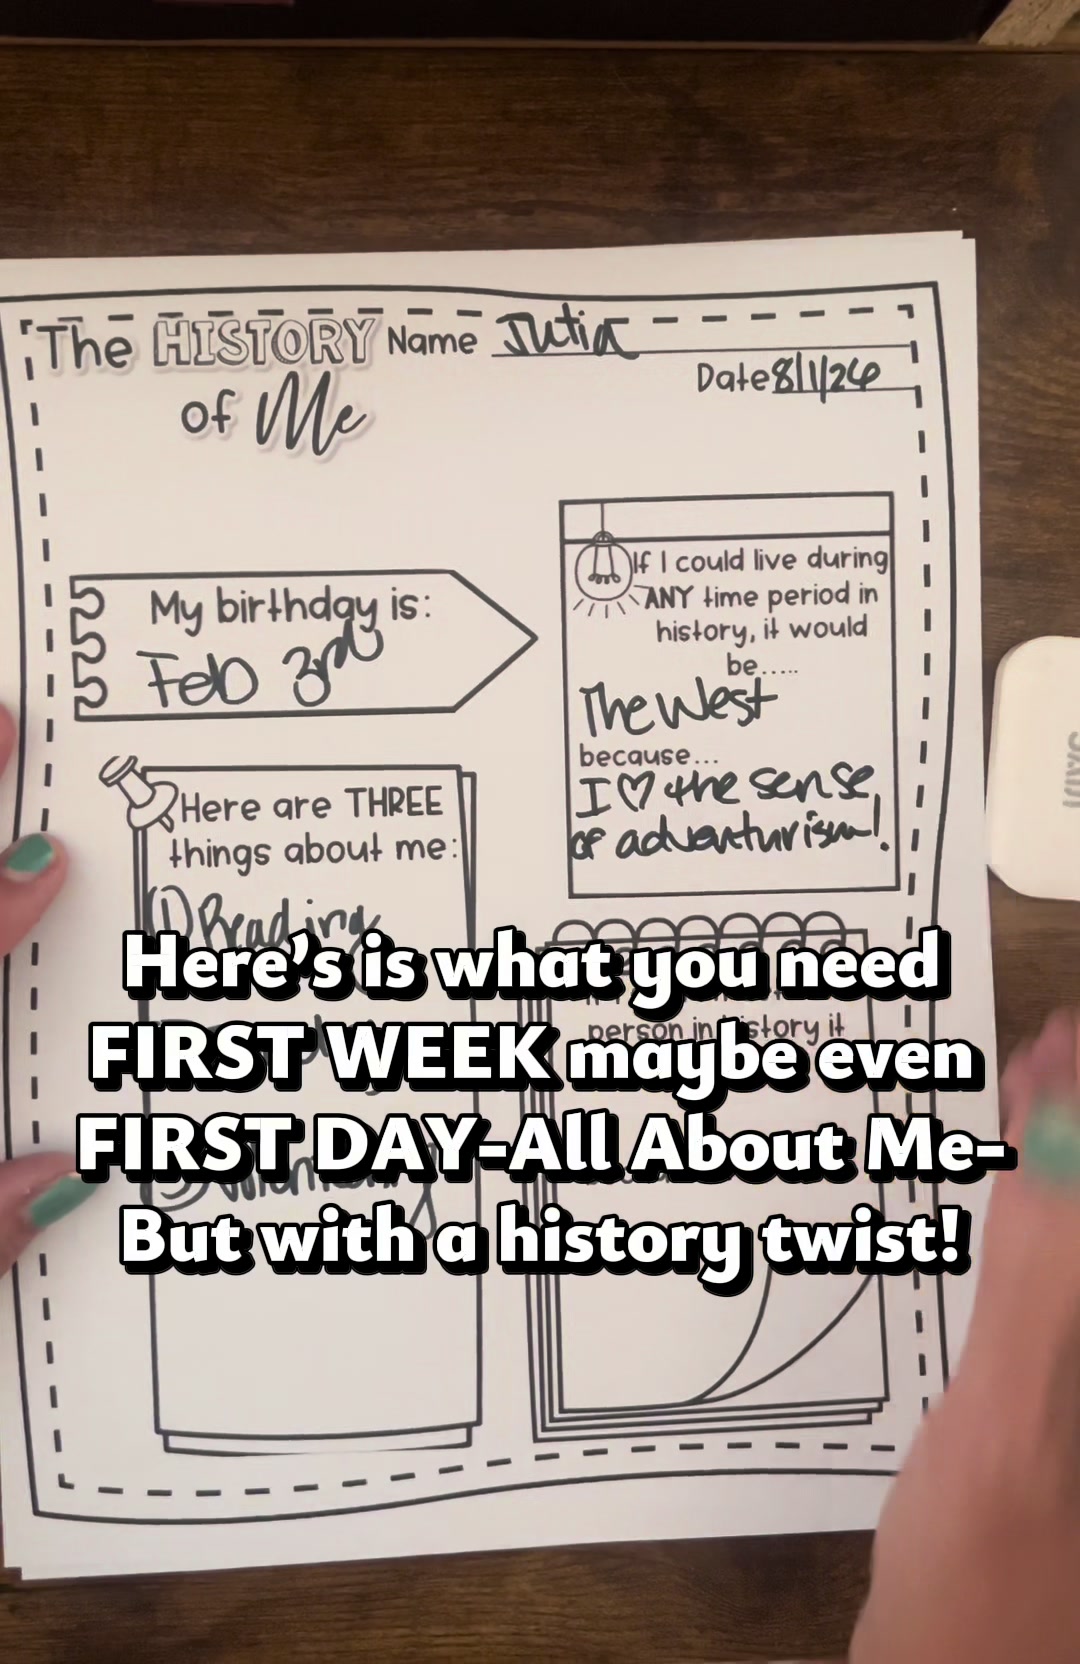 The HISTORY
of Me
Name Julia
Date 8/1/26
My birthday is:
Feb 3rd
If I could live during
ANY time period in
history, it would
be.....
The West
because...
I ♡ the sense
of adventurism!
Here are THREE
things about me:
① Reading
person in history it
Here's is what you need
FIRST WEEK maybe even
FIRST DAY-All About Me-
But with a history twist!